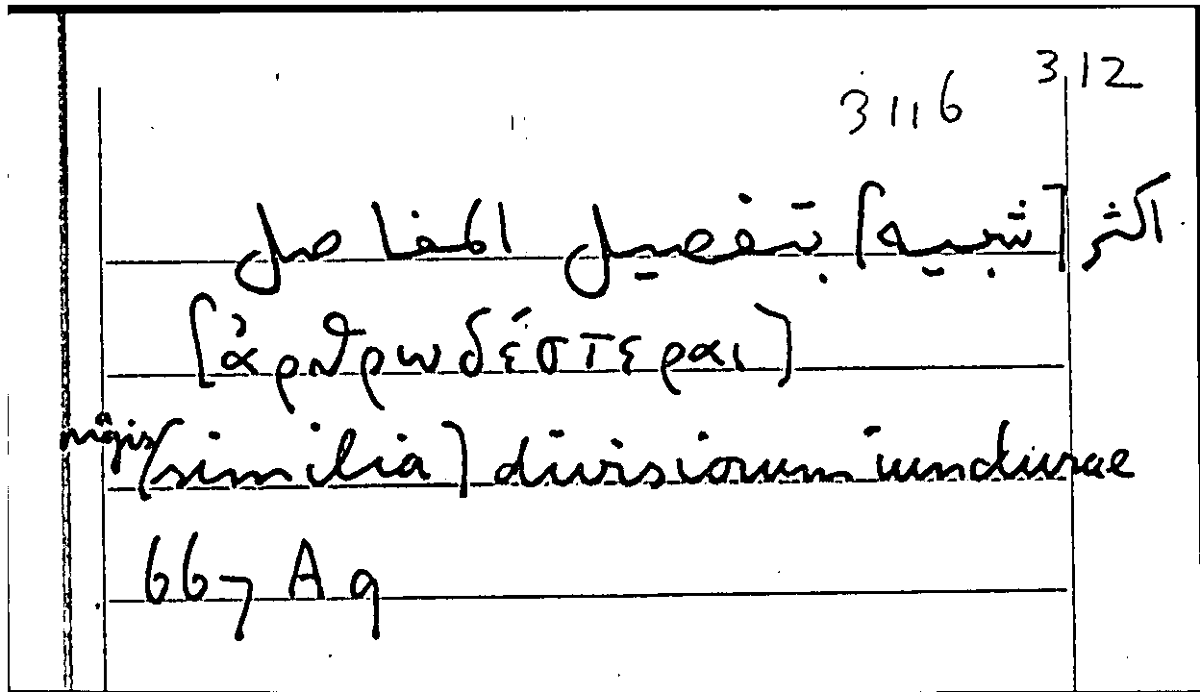 312
3116
اكثر [شبيه] بتفصيل المفاصل
[ἀρθρωδέστεραι]
magis [similia] divisiorum iuncturae
667 A 9